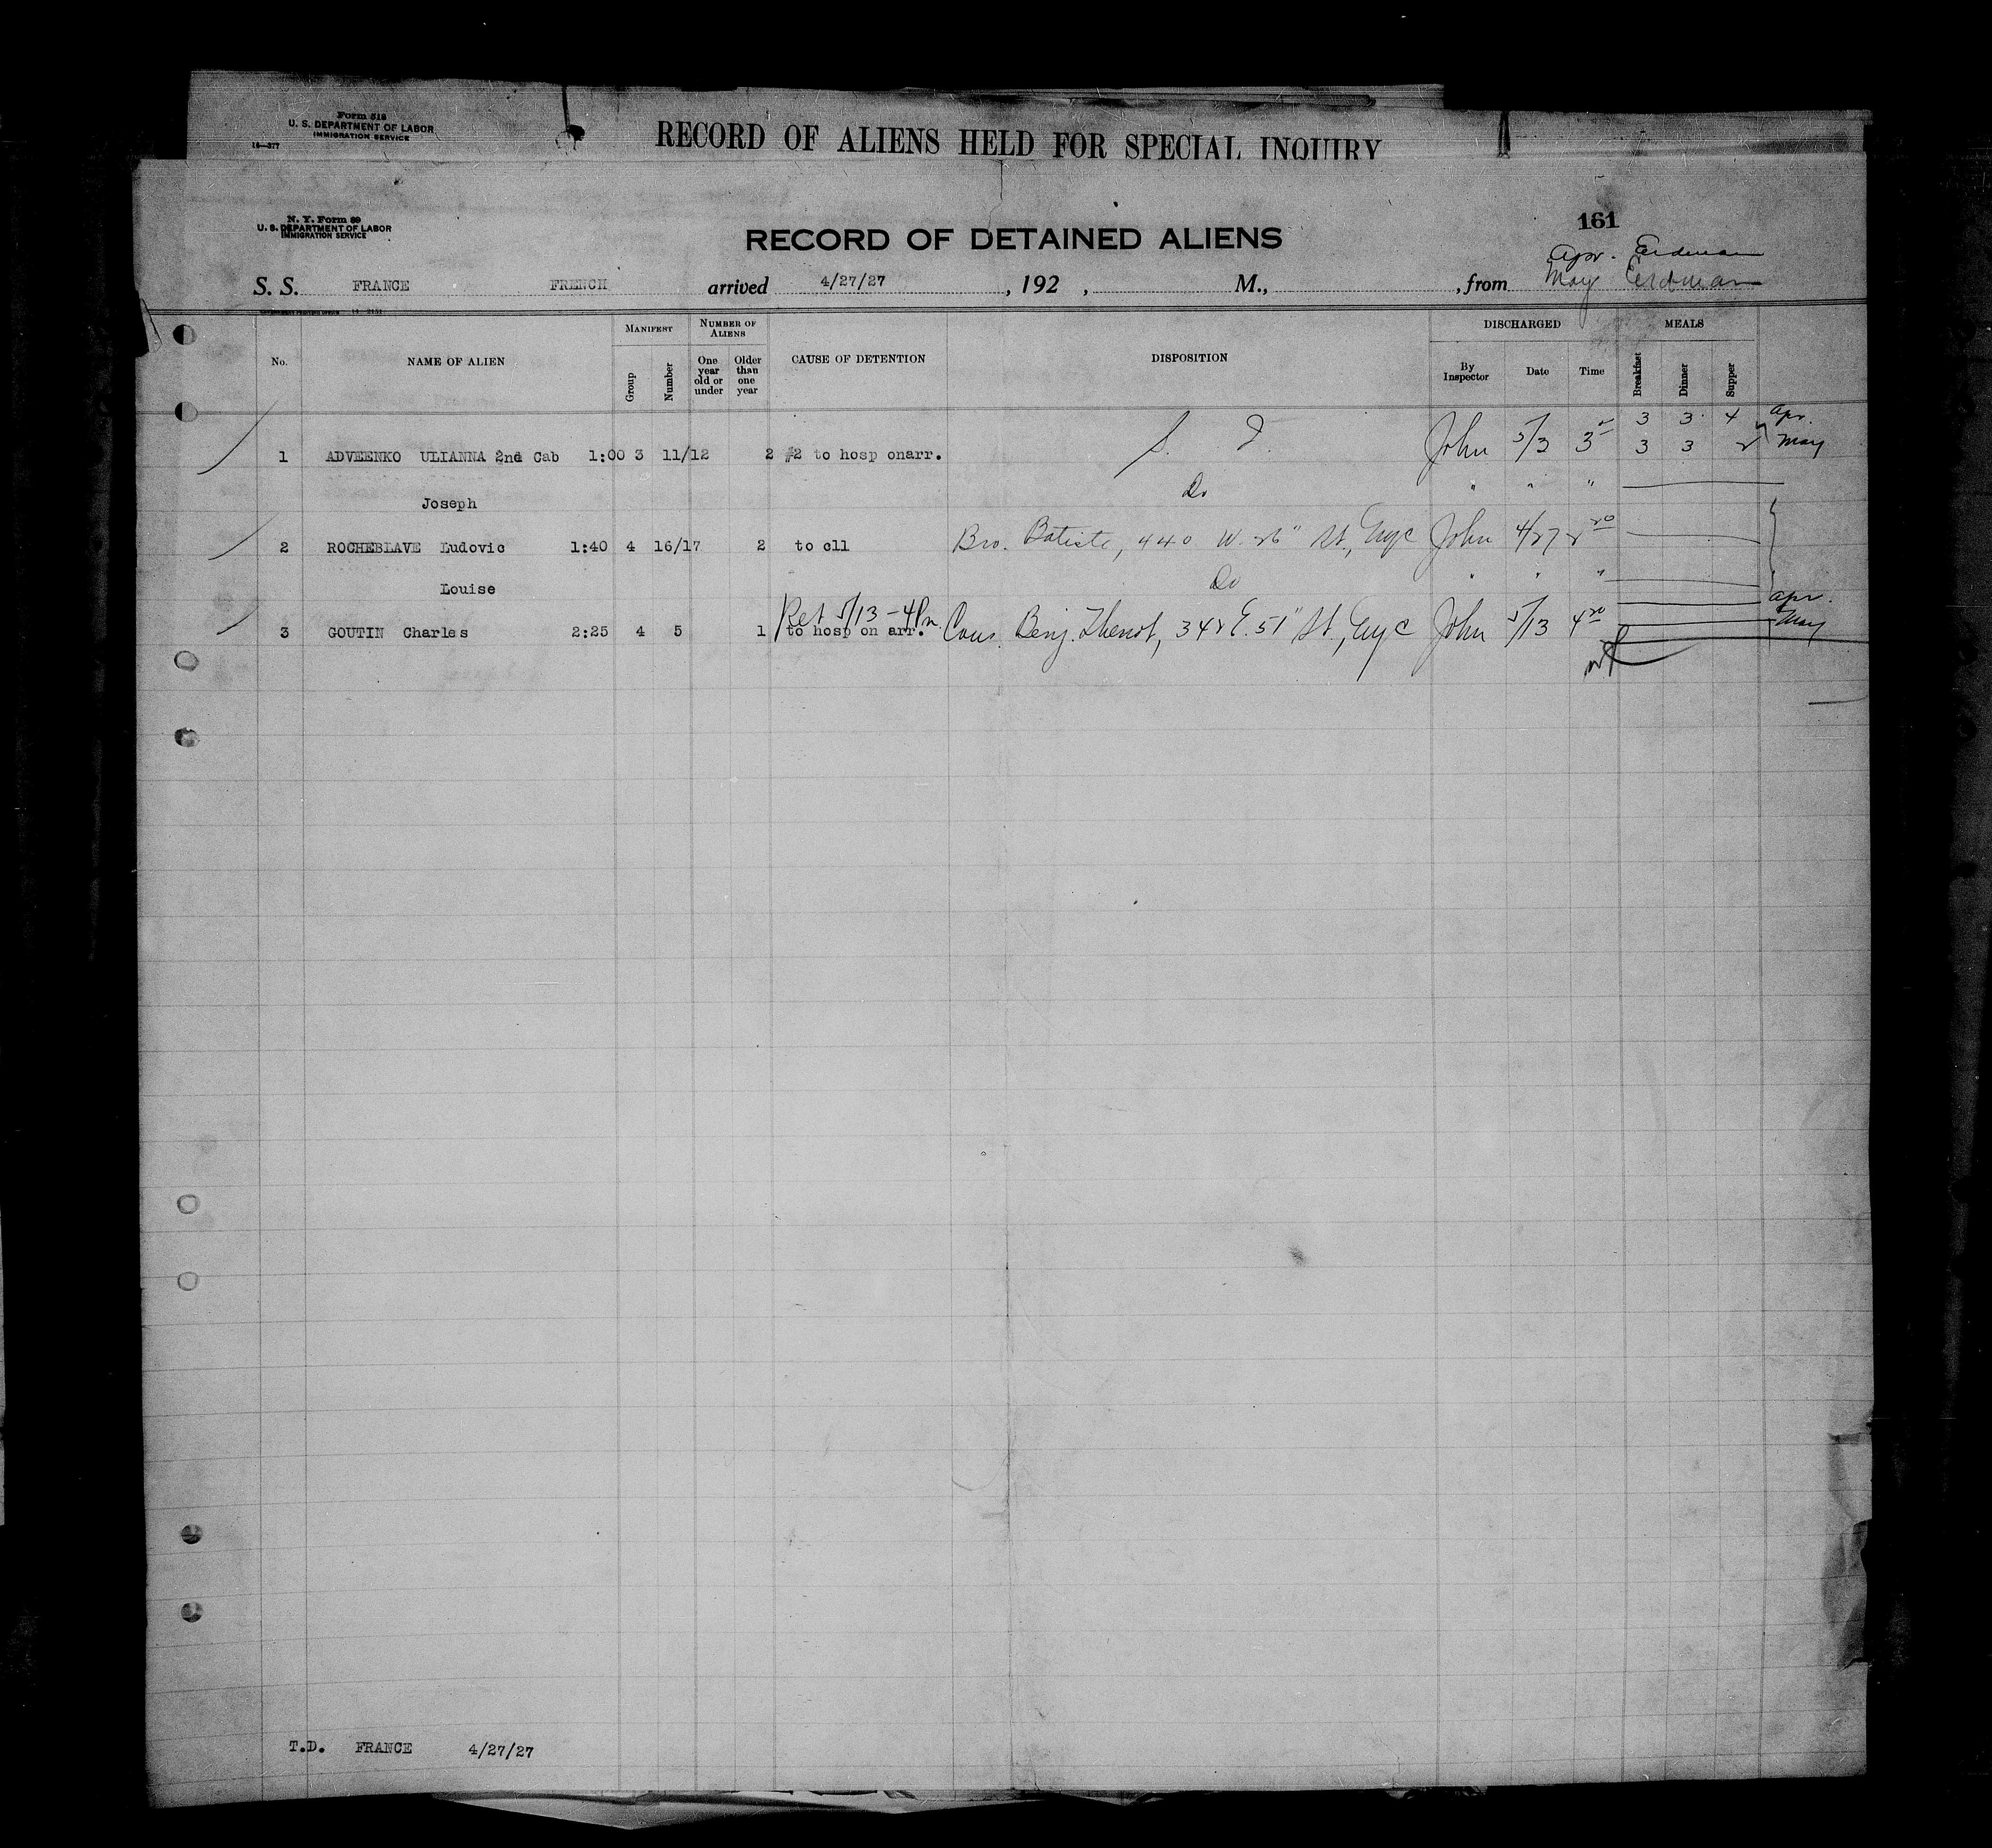 Form 518
U. S. DEPARTMENT OF LABOR
IMMIGRATION SERVICE
16—377
RECORD OF ALIENS HELD FOR SPECIAL INQUIRY
N. Y. Form 69
U. S. DEPARTMENT OF LABOR
IMMIGRATION SERVICE
161
RECORD OF DETAINED ALIENS
Apr. Erdman
May Erdman
S. S. FRANCE FRENCH arrived 4/27/27 , 192 , M., , from
MANIFEST NUMBER OF ALIENS DISCHARGED MEALS
No. NAME OF ALIEN Group Number One year old or under Older than one year CAUSE OF DETENTION DISPOSITION By Inspector Date Time Breakfast Dinner Supper
3 3 4 Apr.
1 ADVEENKO ULIANNA 2nd Cab 1:00 3 11/12 2 #2 to hosp onarr. S. I. John 5/3 3 3 3 2 May
Joseph Do " " "
2 ROCHEBLAVE Ludovic 1:40 4 16/17 2 to cll Bro. Batiste, 440 W. 26" St., Nyc John 4/27 2 20
Louise Do " " "
Ret 5/13 - 4 Pm. Apr.
3 GOUTIN Charles 2:25 4 5 1 to hosp on arr. Cous. Benj. Thenot, 342 E. 51" St., Nyc John 5/13 4 20 May
T.D. FRANCE 4/27/27